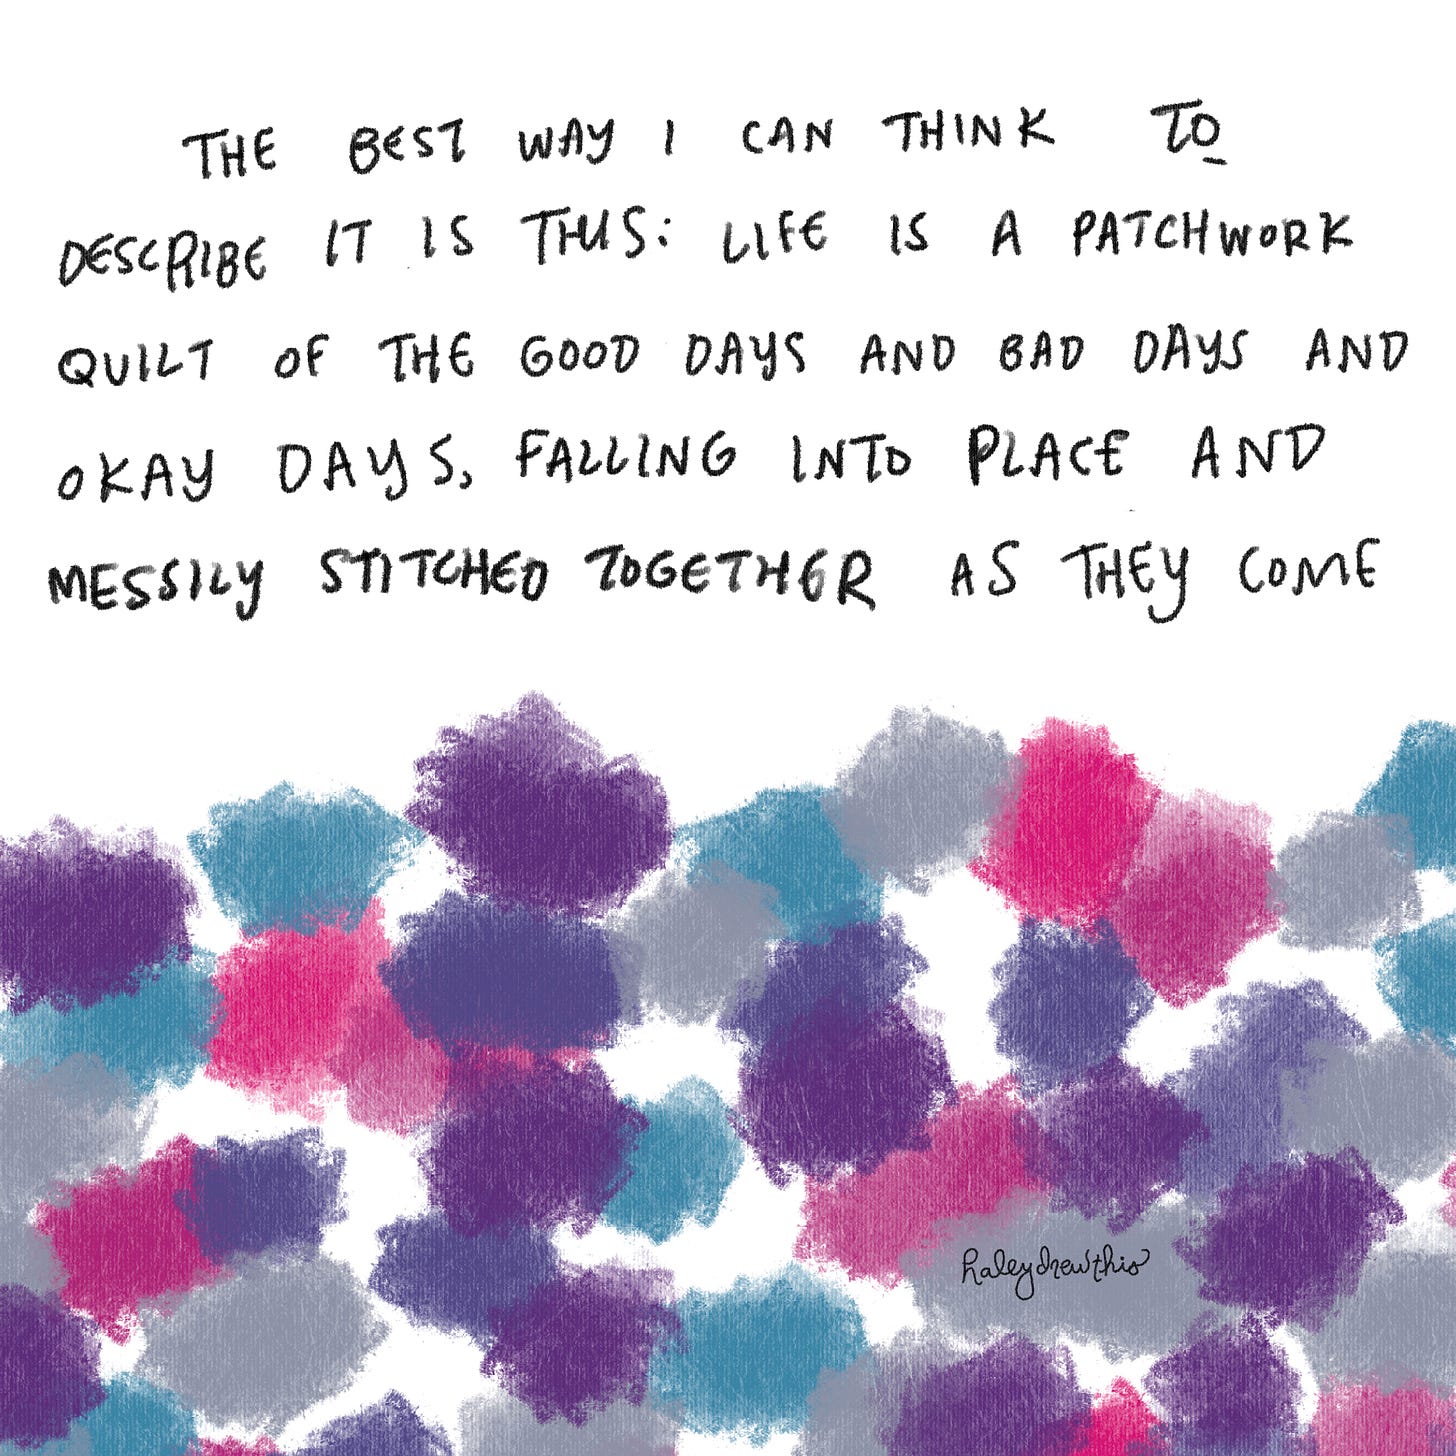 THE BEST WAY I CAN THINK TO
DESCRIBE IT IS THIS: LIFE IS A PATCHWORK
QUILT OF THE GOOD DAYS AND BAD DAYS AND
OKAY DAYS, FALLING INTO PLACE AND
MESSILY STITCHED TOGETHER AS THEY COME
haleydrewthis